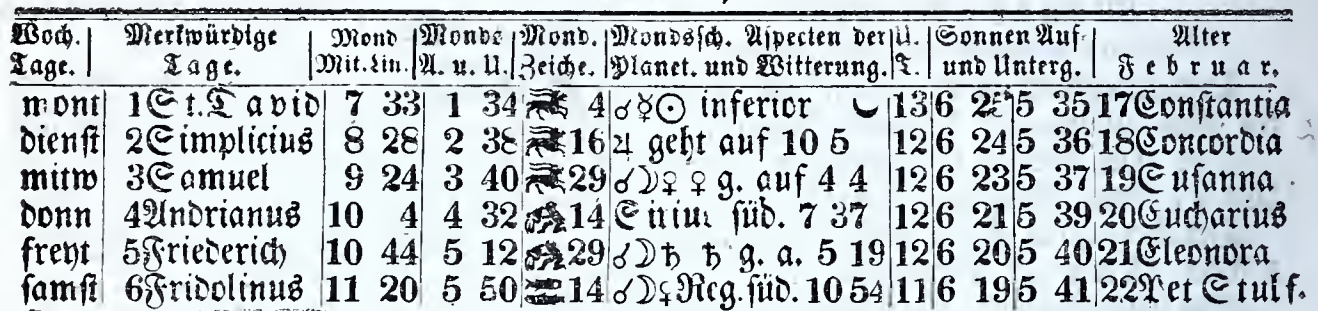 Woch. Merkwürdige Mond Monds Mond. Mondssch. Aspecten der U. Sonnen Auf- Alter
Tage. Tage. Mit. Lin. A. u. U. Zeiche. Planet. und Witterung. T. und Unterg. Februar.
mont 1 St. David 7 33 1 34 4 ☌☿☉ inferior 13 6 5 35 17 Constantia
dienst 2 Simplicius 8 28 2 38 16 ♃ geht auf 10 5 12 6 24 5 36 18 Concordia
mitw 3 Samuel 9 24 3 40 29 ☌☽♀ ♀ g. auf 4 4 12 6 23 5 37 19 Susanna
donn 4 Andrianus 10 4 4 32 14 Sirius süd. 7 37 12 6 21 5 39 20 Eucharius
freyt 5 Friederich 10 44 5 12 29 ☌☽♄ ♄ g. a. 5 19 12 6 20 5 40 21 Eleonora
samst 6 Fridolinus 11 20 5 50 14 ☌☽☿ Reg. süd. 10 54 11 6 19 5 41 22 Pet Stulf.